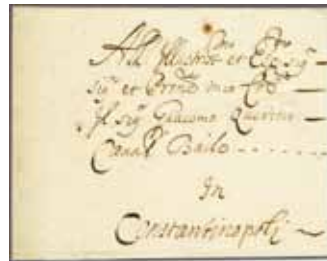 All' Illustrmo et Ecc.mo Sig.r
Sig.r et Pron mio
Il Sig.r Giacomo Querini
Caval.r Bailo
In
Constantinopoli